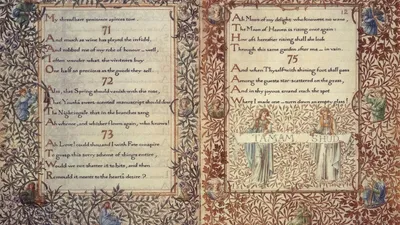 My threadbare penitence apieces tore.
71
And much as wine has played the infidel,
And robbed me of my robe of honour – well,
I often wonder what the vintners buy
One half so precious as the goods they sell.
72
Alas, that Spring should vanish with the rose,
That Youth's sweet-scented manuscript should close
The Nightingale that in the branches sang,
Ah whence, and whither flown again, who knows!
73
Ah Love! could thou and I with Fate conspire
To grasp this sorry scheme of things entire,
Would we not shatter it to bits, and then
Remould it nearer to the heart's desire?
12
Ah Moon of my delight who knowest no wane,
The Moon of Heaven is rising once again:
How oft hereafter rising shall she look
Through this same garden after me – in vain.
75
And when Thyself with shining foot shall pass
Among the guests star-scattered on the grass,
And in thy joyous errand reach the spot
Where I made one – turn down an empty glass!